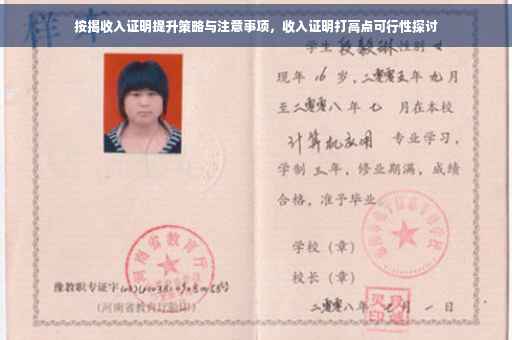 按揭收入证明提升策略与注意事项，收入证明打高点可行性探讨
样本
学生 段毅琳 性别 女
现年 16 岁，二零零五年 九月
至二零零八年 七 月在本校
计算机应用 专业学习，
学制 三年，修业期满，成绩
合格，准予毕业
学校（章）
校长（章）
河南省教育厅
豫教职专证字
（河南省教育厅验印）
二零零八年 月 一 日